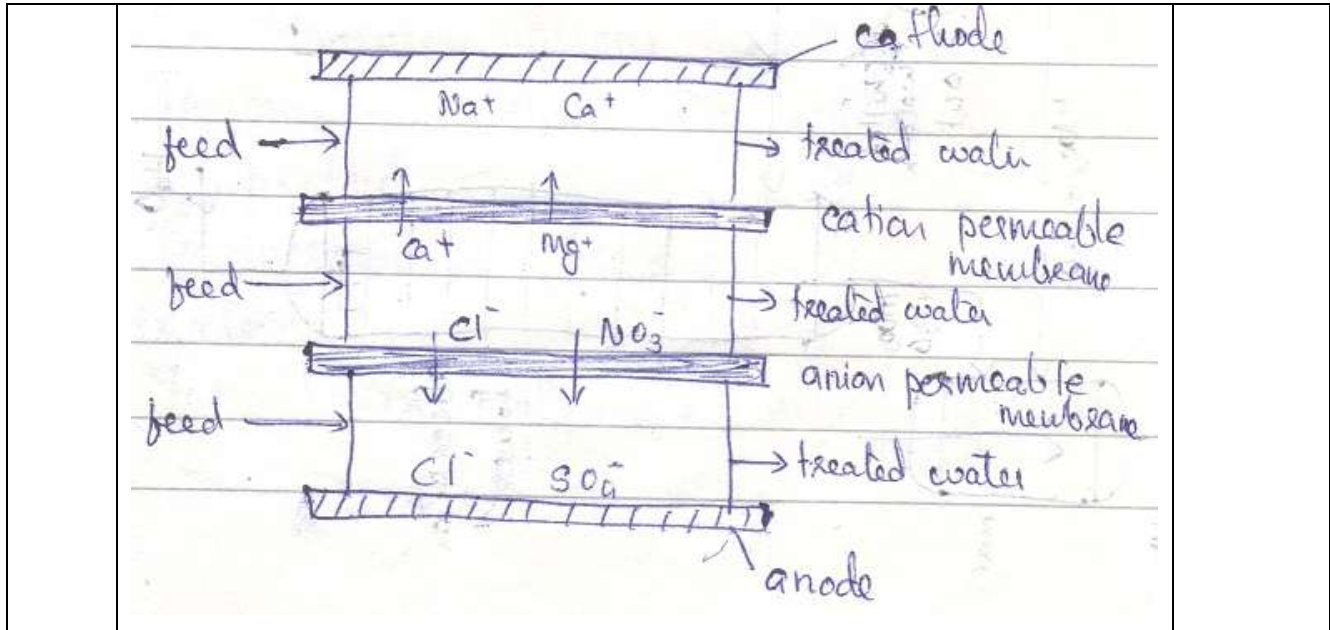 cathode
Na+ Ca+
feed
treated water
cation permeable
membrane
Ca+ Mg+
feed
treated water
Cl- NO3-
anion permeable
membrane
feed
treated water
Cl- SO4-
anode